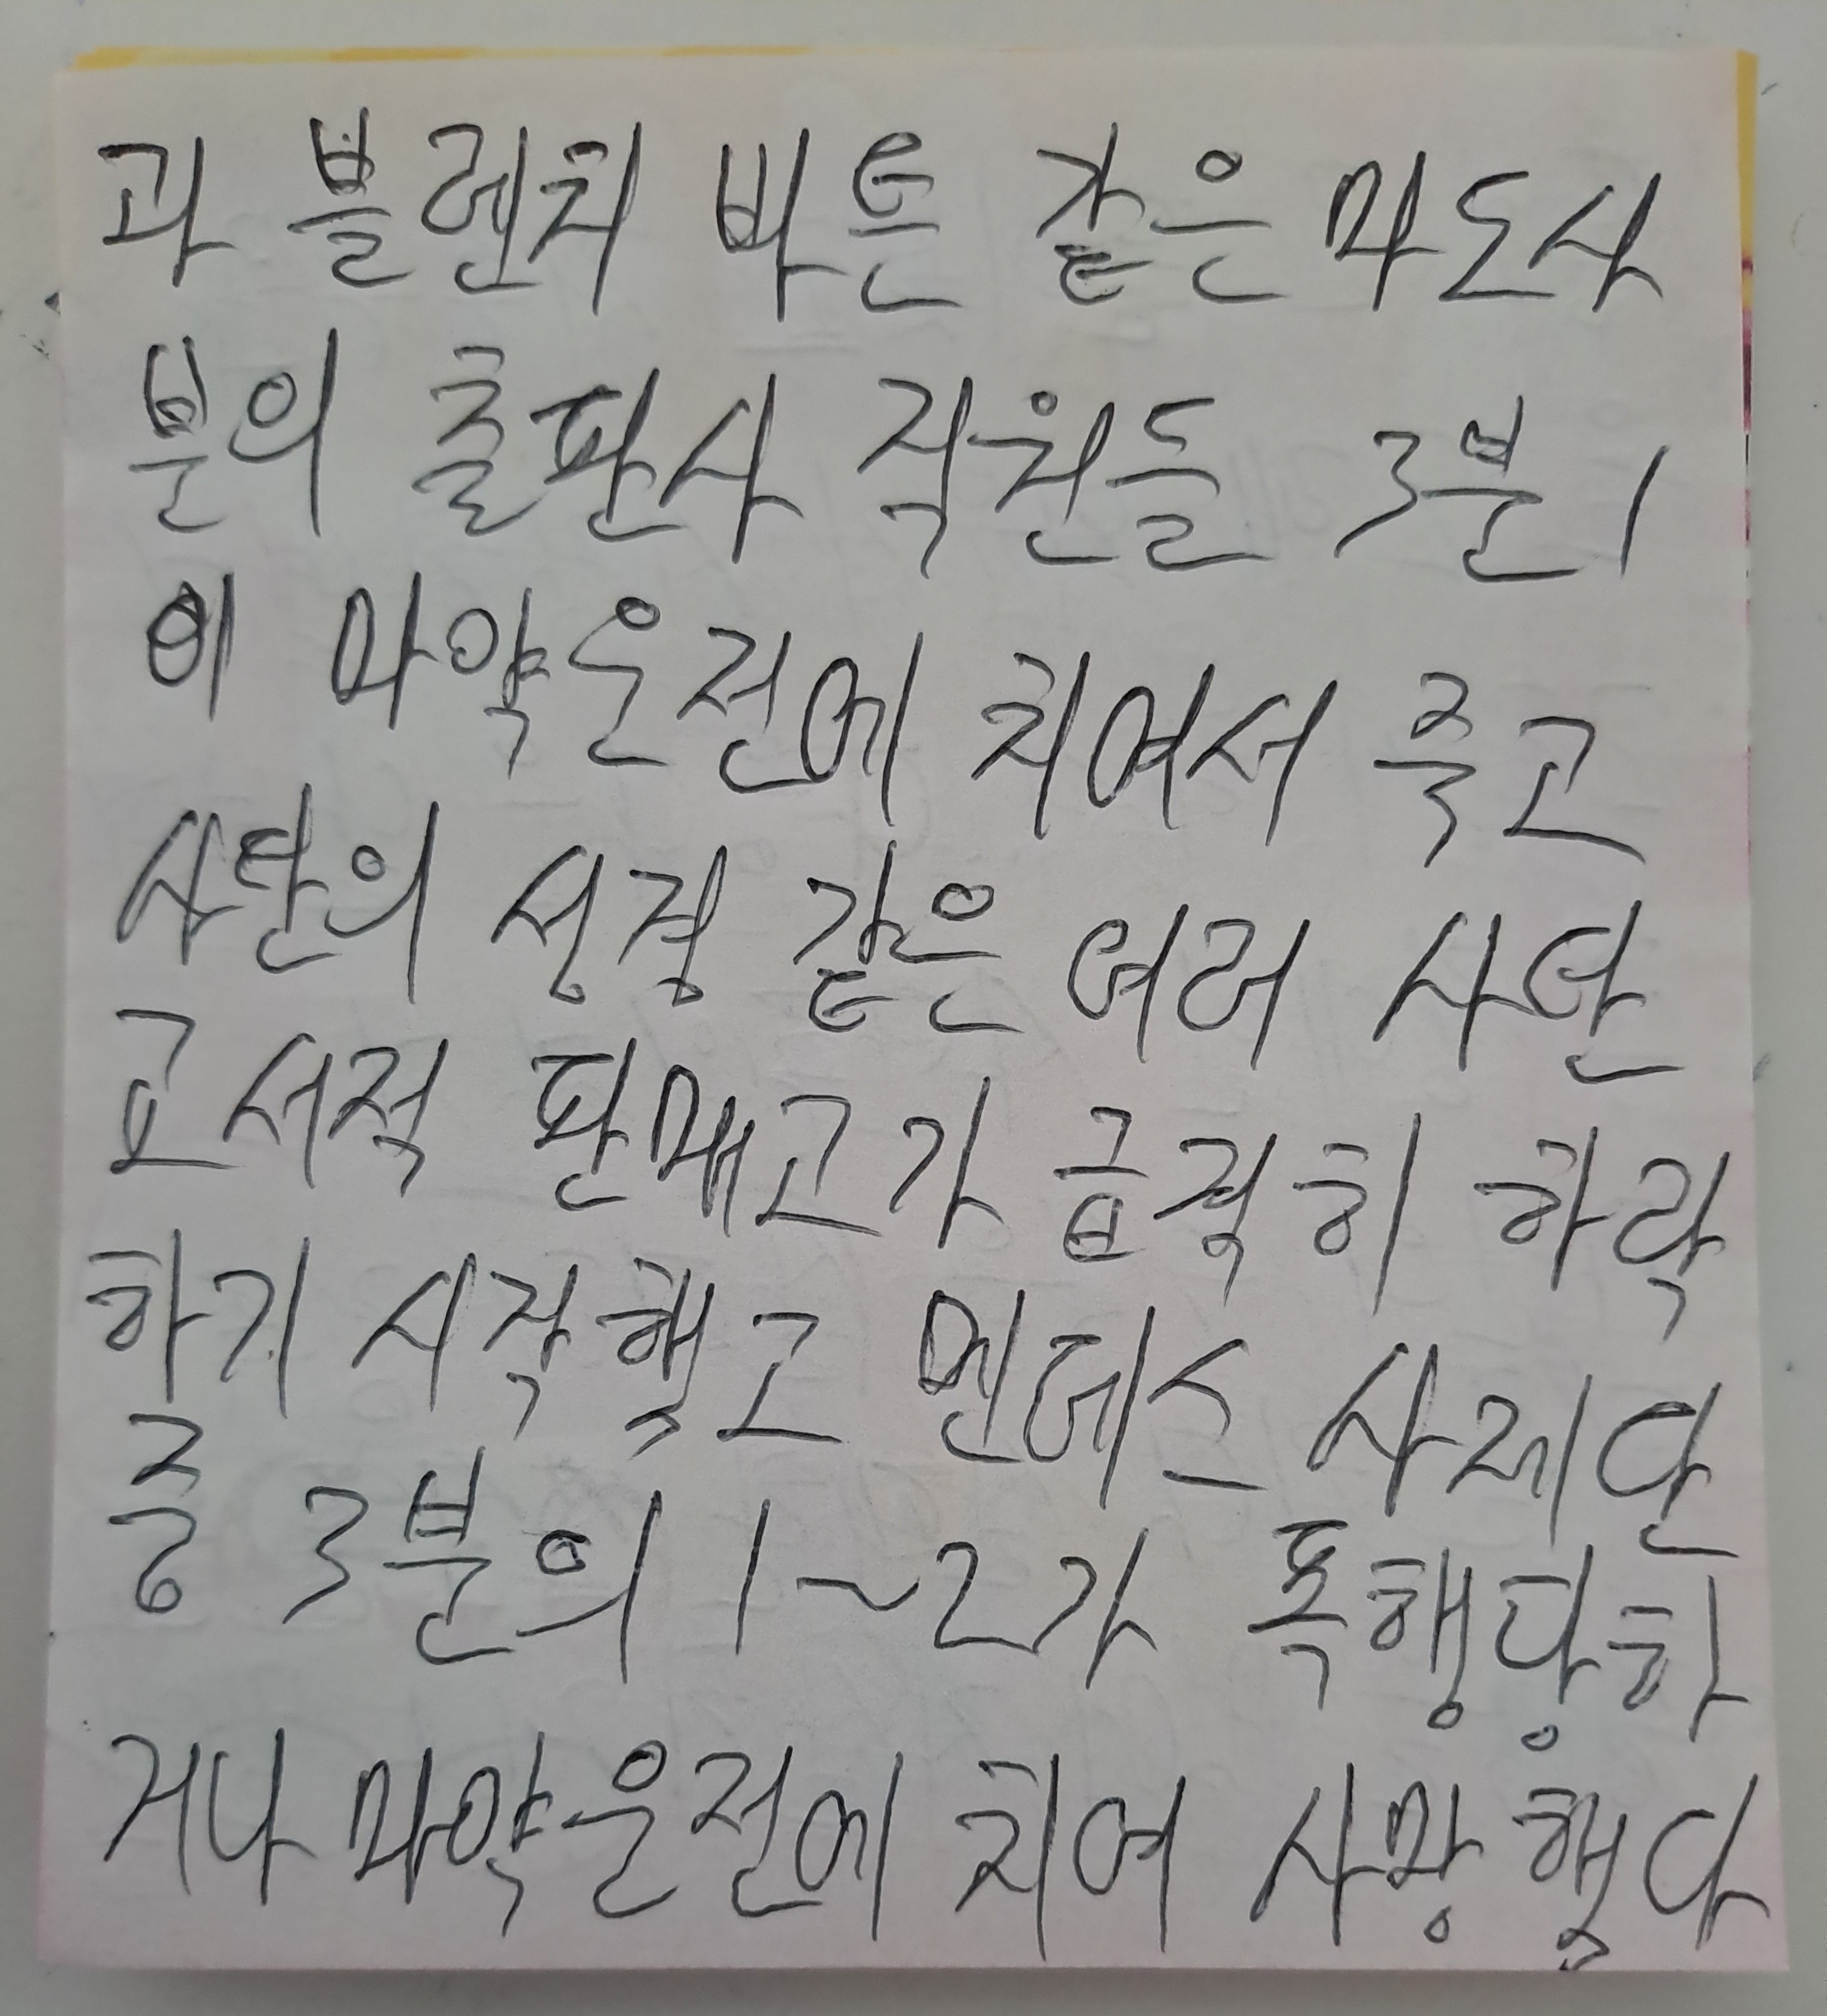 과 블렌치 바튼 같은 마도사
분의 출판사 직원들 3분 1
이 마약운전에 치여서 죽고
사탄의 성경 같은 여러 사탄
교 서적 판매고가 급격히 하락
하기 시작했고 멘데스 사제단
중 3분의 1~2가 폭행당하
거나 마약운전에 치여 사망했다